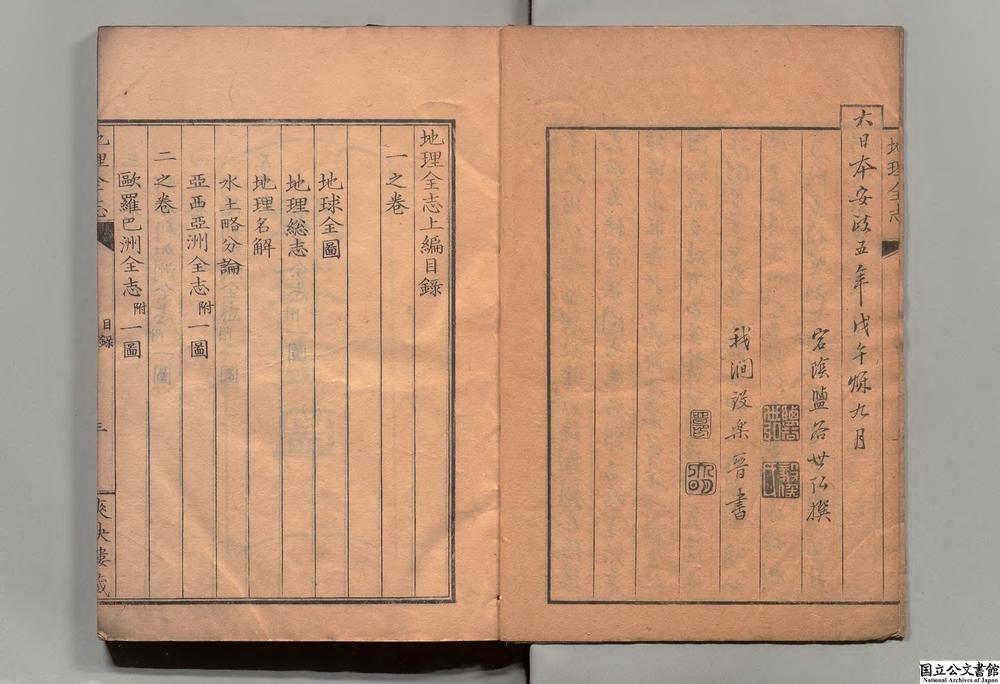 大日本安政五年戊午秌九月
宕陰鹽谷世弘撰
我澗設楽晉書
地理全志
地理全志上編目錄
一之卷
地球全圖
地理総志
地理名解
水土略分論
亞西亞洲全志附一圖
二之卷
歐羅巴洲全志附一圖
地理全志
目錄
爽快樓藏
国立公文書館
National Archives of Japan